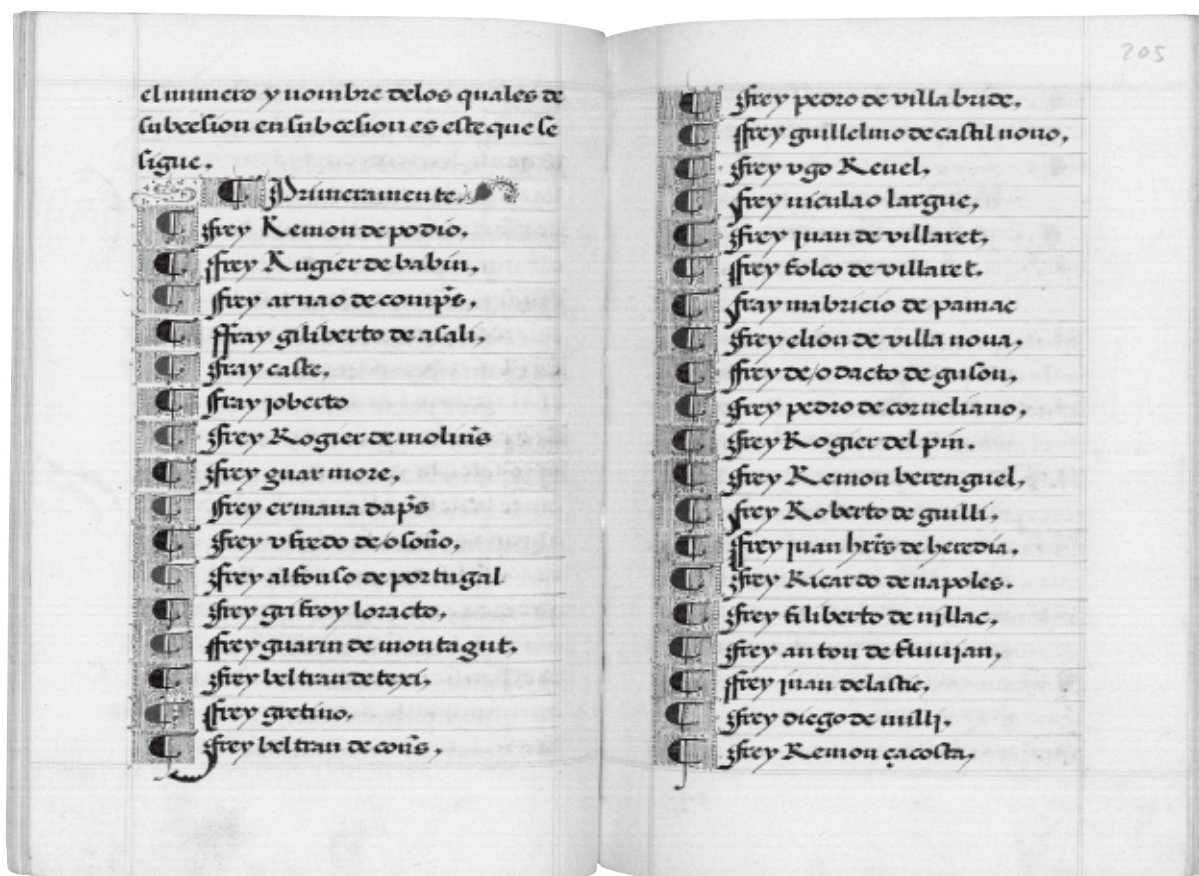 el numero y nombre delos quales de
subcesion en subcesion es este que se
sigue.
Primeramente.
ffrey Remon de podio,
ffrey Rugier de babin,
ffrey arnao de comp̃s,
ffray giliberto de asali,
ffray caste,
ffray joberto
ffrey Rogier de molin̄s
ffrey guar more,
ffrey ermana dap̃s
ffrey vfredo de osoño,
ffrey alfonso de portugal
ffrey grifroy loracto,
ffrey guarin de montagut.
ffrey beltran de texi,
ffrey gretino,
ffrey beltran de com̃s,
205
ffrey pedro de villa bride.
ffrey guillelmo de castil novo,
ffrey vgo Revel,
ffrey niculao largue,
ffrey juan de villaret,
ffrey folco de villaret.
ffray mabricio de pamac
ffrey elion de villa nova,
ffrey de/o dacto de guson,
ffrey pedro de corneliano,
ffrey Rogier del pin.
ffrey Remon berenguel,
ffrey Roberto de guilli,
ffrey juan hr̃s de heredia.
ffrey Ricardo de napoles.
ffrey filiberto de nillac,
ffrey anton de fluvian,
ffrey juan delastic,
ffrey diego de milli,
ffrey Remon çacosta,